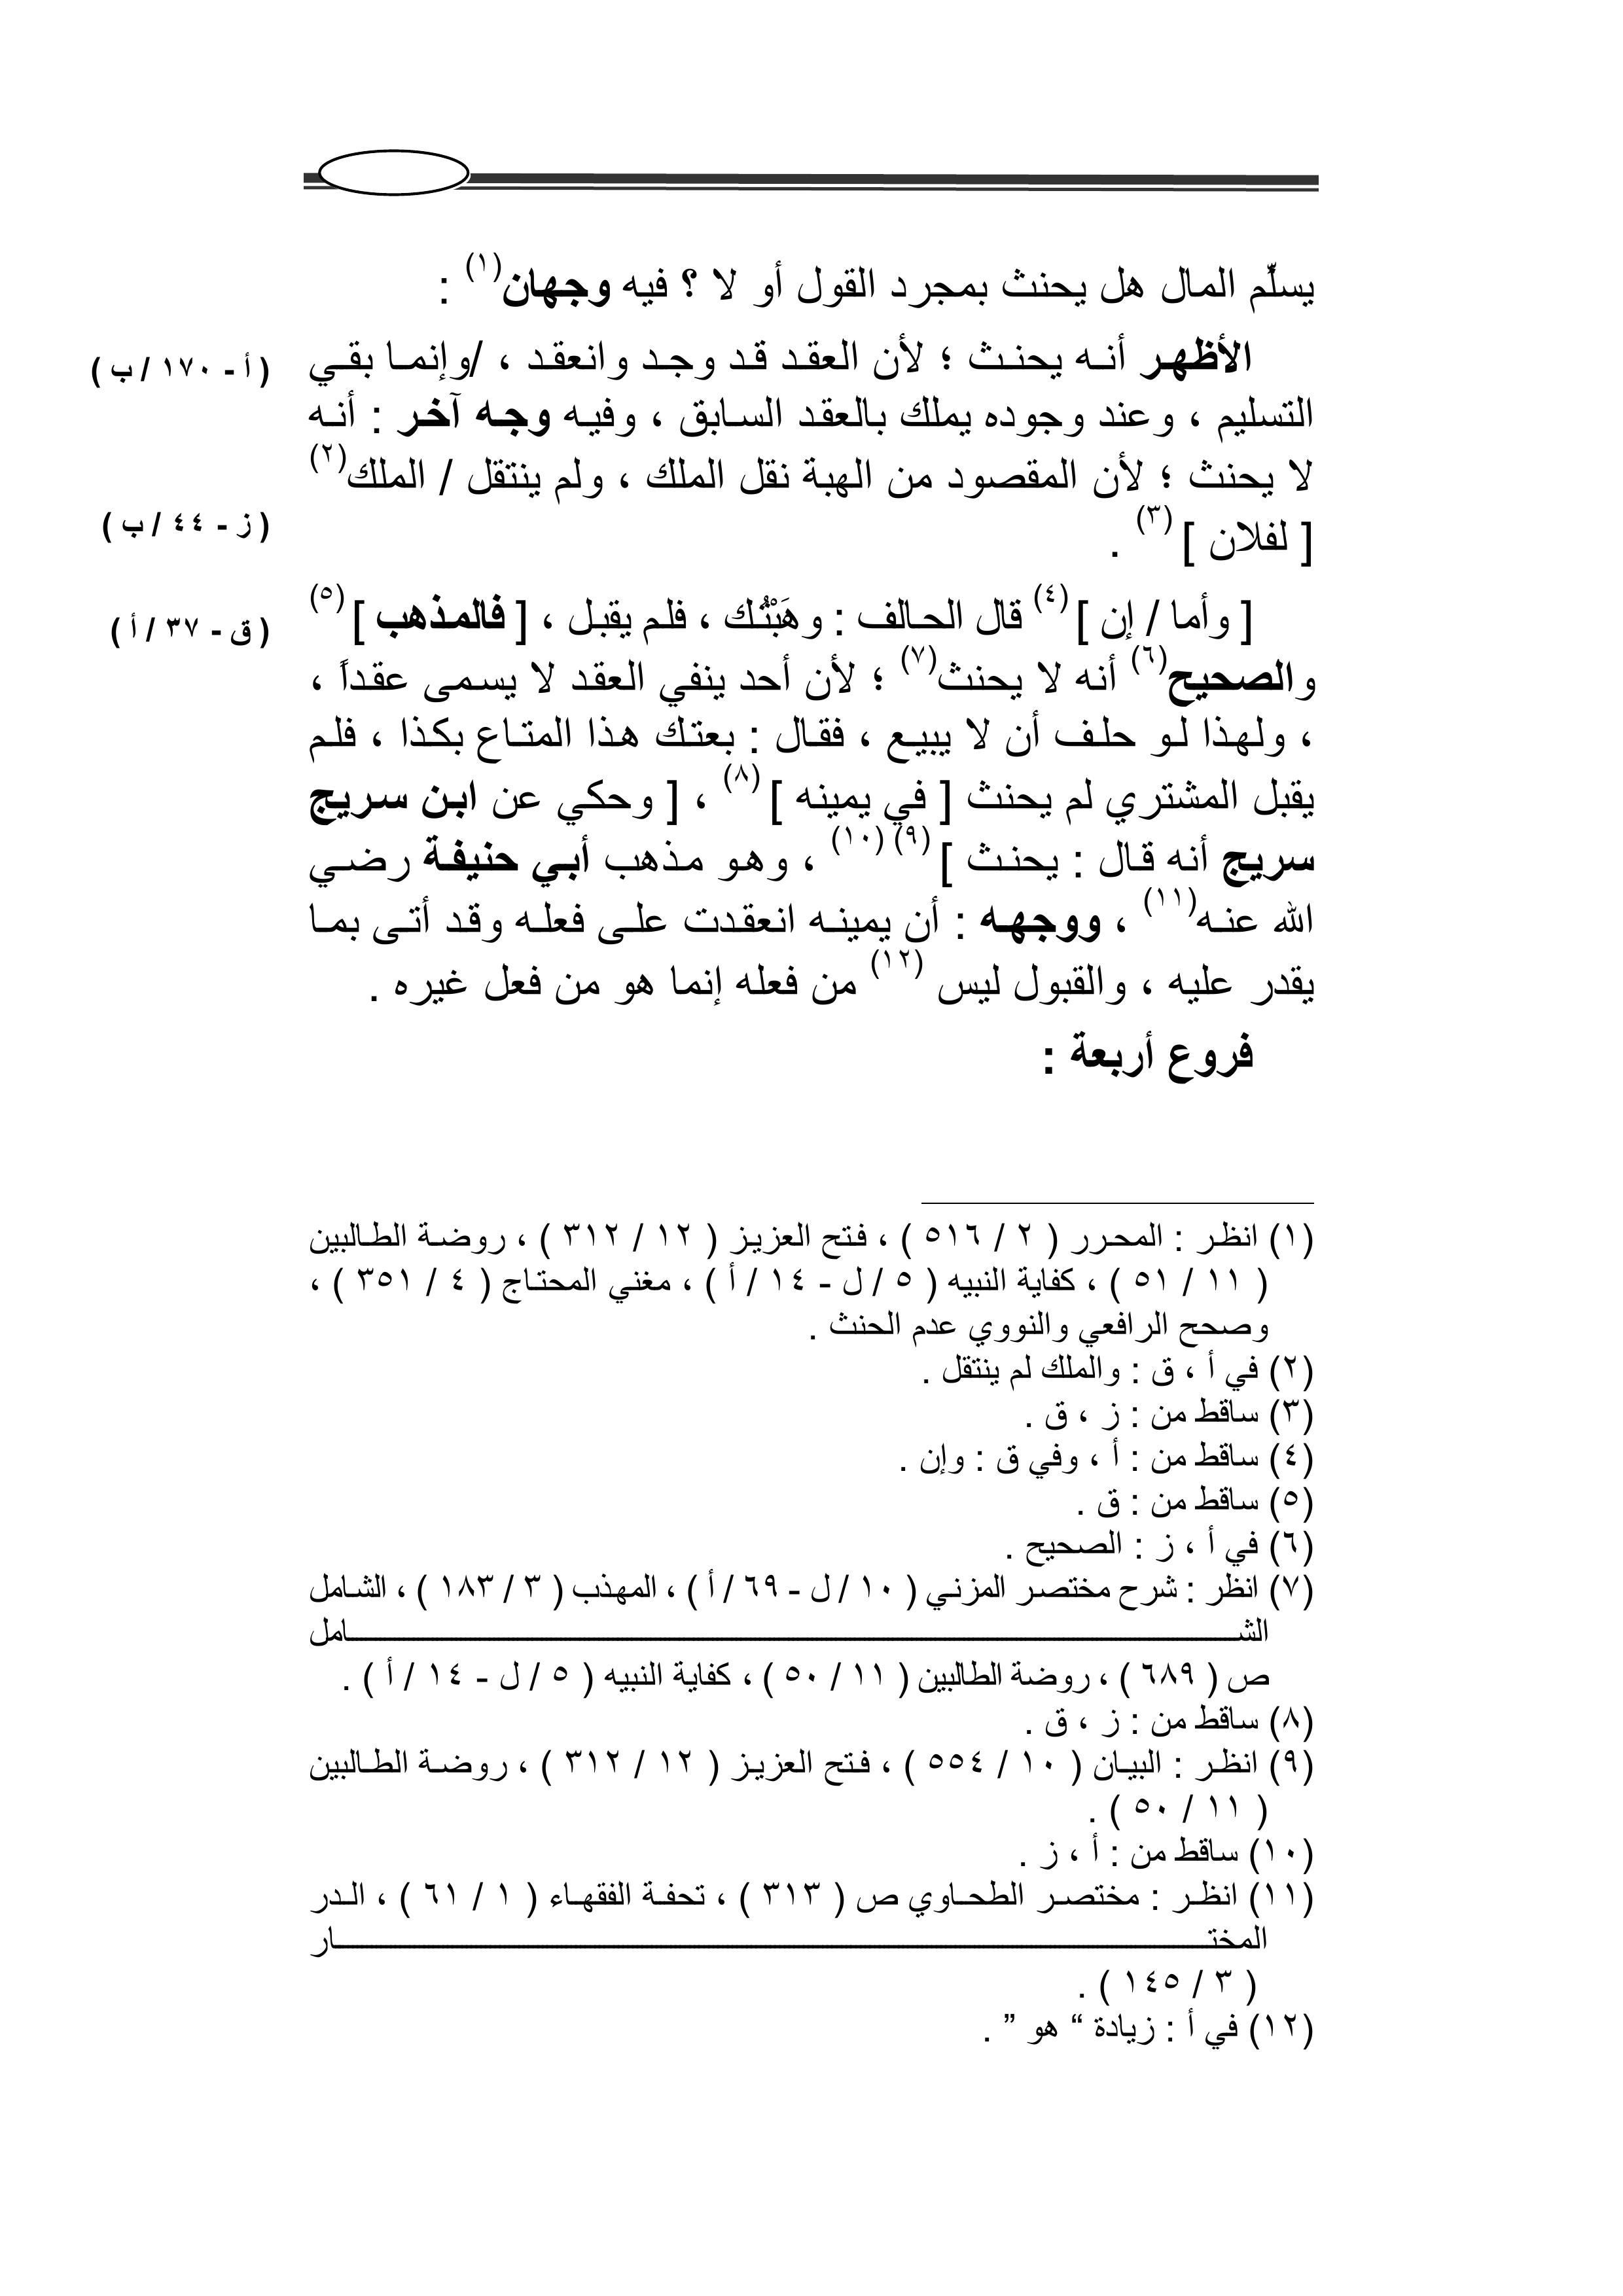 يسلِّم المال هل يحنث بمجرد القول أو لا ؟ فيه وجهان(١) :
الأظهر أنه يحنث ؛ لأن العقد قد وجد وانعقد ، /وإنما بقي
( أ - ١٧٠ / ب )
التسليم ، وعند وجوده يملك بالعقد السابق ، وفيه وجه آخر : أنه
لا يحنث ؛ لأن المقصود من الهبة نقل الملك ، ولم ينتقل / الملك(٢)
( ز - ٤٤ / ب )
[ لفلان ] (٣) .
[ وأما / إن ] (٤) قال الحالف : وهَبْتُك ، فلم يقبل ، [ فالمذهب ] (٥)
( ق - ٣٧ / أ )
والصحيح(٦) أنه لا يحنث(٧) ؛ لأن أحد ينفي العقد لا يسمى عقداً ،
، ولهذا لو حلف أن لا يبيع ، فقال : بعتك هذا المتاع بكذا ، فلم
يقبل المشتري لم يحنث [ في يمينه ] (٨) ، [ وحكي عن ابن سريج
سريج أنه قال : يحنث ] (٩) (١٠) ، وهو مذهب أبي حنيفة رضي
الله عنه(١١) ، ووجهه : أن يمينه انعقدت على فعله وقد أتى بما
يقدر عليه ، والقبول ليس (١٢) من فعله إنما هو من فعل غيره .
فروع أربعة :
(١) انظر : المحرر ( ٢ / ٥١٦ ) ، فتح العزيز ( ١٢ / ٣١٢ ) ، روضة الطالبين
( ١١ / ٥١ ) ، كفاية النبيه ( ٥ / ل - ١٤ / أ ) ، مغني المحتاج ( ٤ / ٣٥١ ) ،
وصحح الرافعي والنووي عدم الحنث .
(٢) في أ ، ق : والملك لم ينتقل .
(٣) ساقط من : ز ، ق .
(٤) ساقط من : أ ، وفي ق : وإن .
(٥) ساقط من : ق .
(٦) في أ ، ز : الصحيح .
(٧) انظر : شرح مختصر المزني ( ١٠ / ل - ٦٩ / أ ) ، المهذب ( ٣ / ١٨٣ ) ، الشامل
الشامل
ص ( ٦٨٩ ) ، روضة الطالبين ( ١١ / ٥٠ ) ، كفاية النبيه ( ٥ / ل - ١٤ / أ ) .
(٨) ساقط من : ز ، ق .
(٩) انظر : البيان ( ١٠ / ٥٥٤ ) ، فتح العزيز ( ١٢ / ٣١٢ ) ، روضة الطالبين
( ١١ / ٥٠ ) .
(١٠) ساقط من : أ ، ز .
(١١) انظر : مختصر الطحاوي ص ( ٣١٣ ) ، تحفة الفقهاء ( ١ / ٦١ ) ، الدر
المختار
( ٣ / ١٤٥ ) .
(١٢) في أ : زيادة “ هو ” .